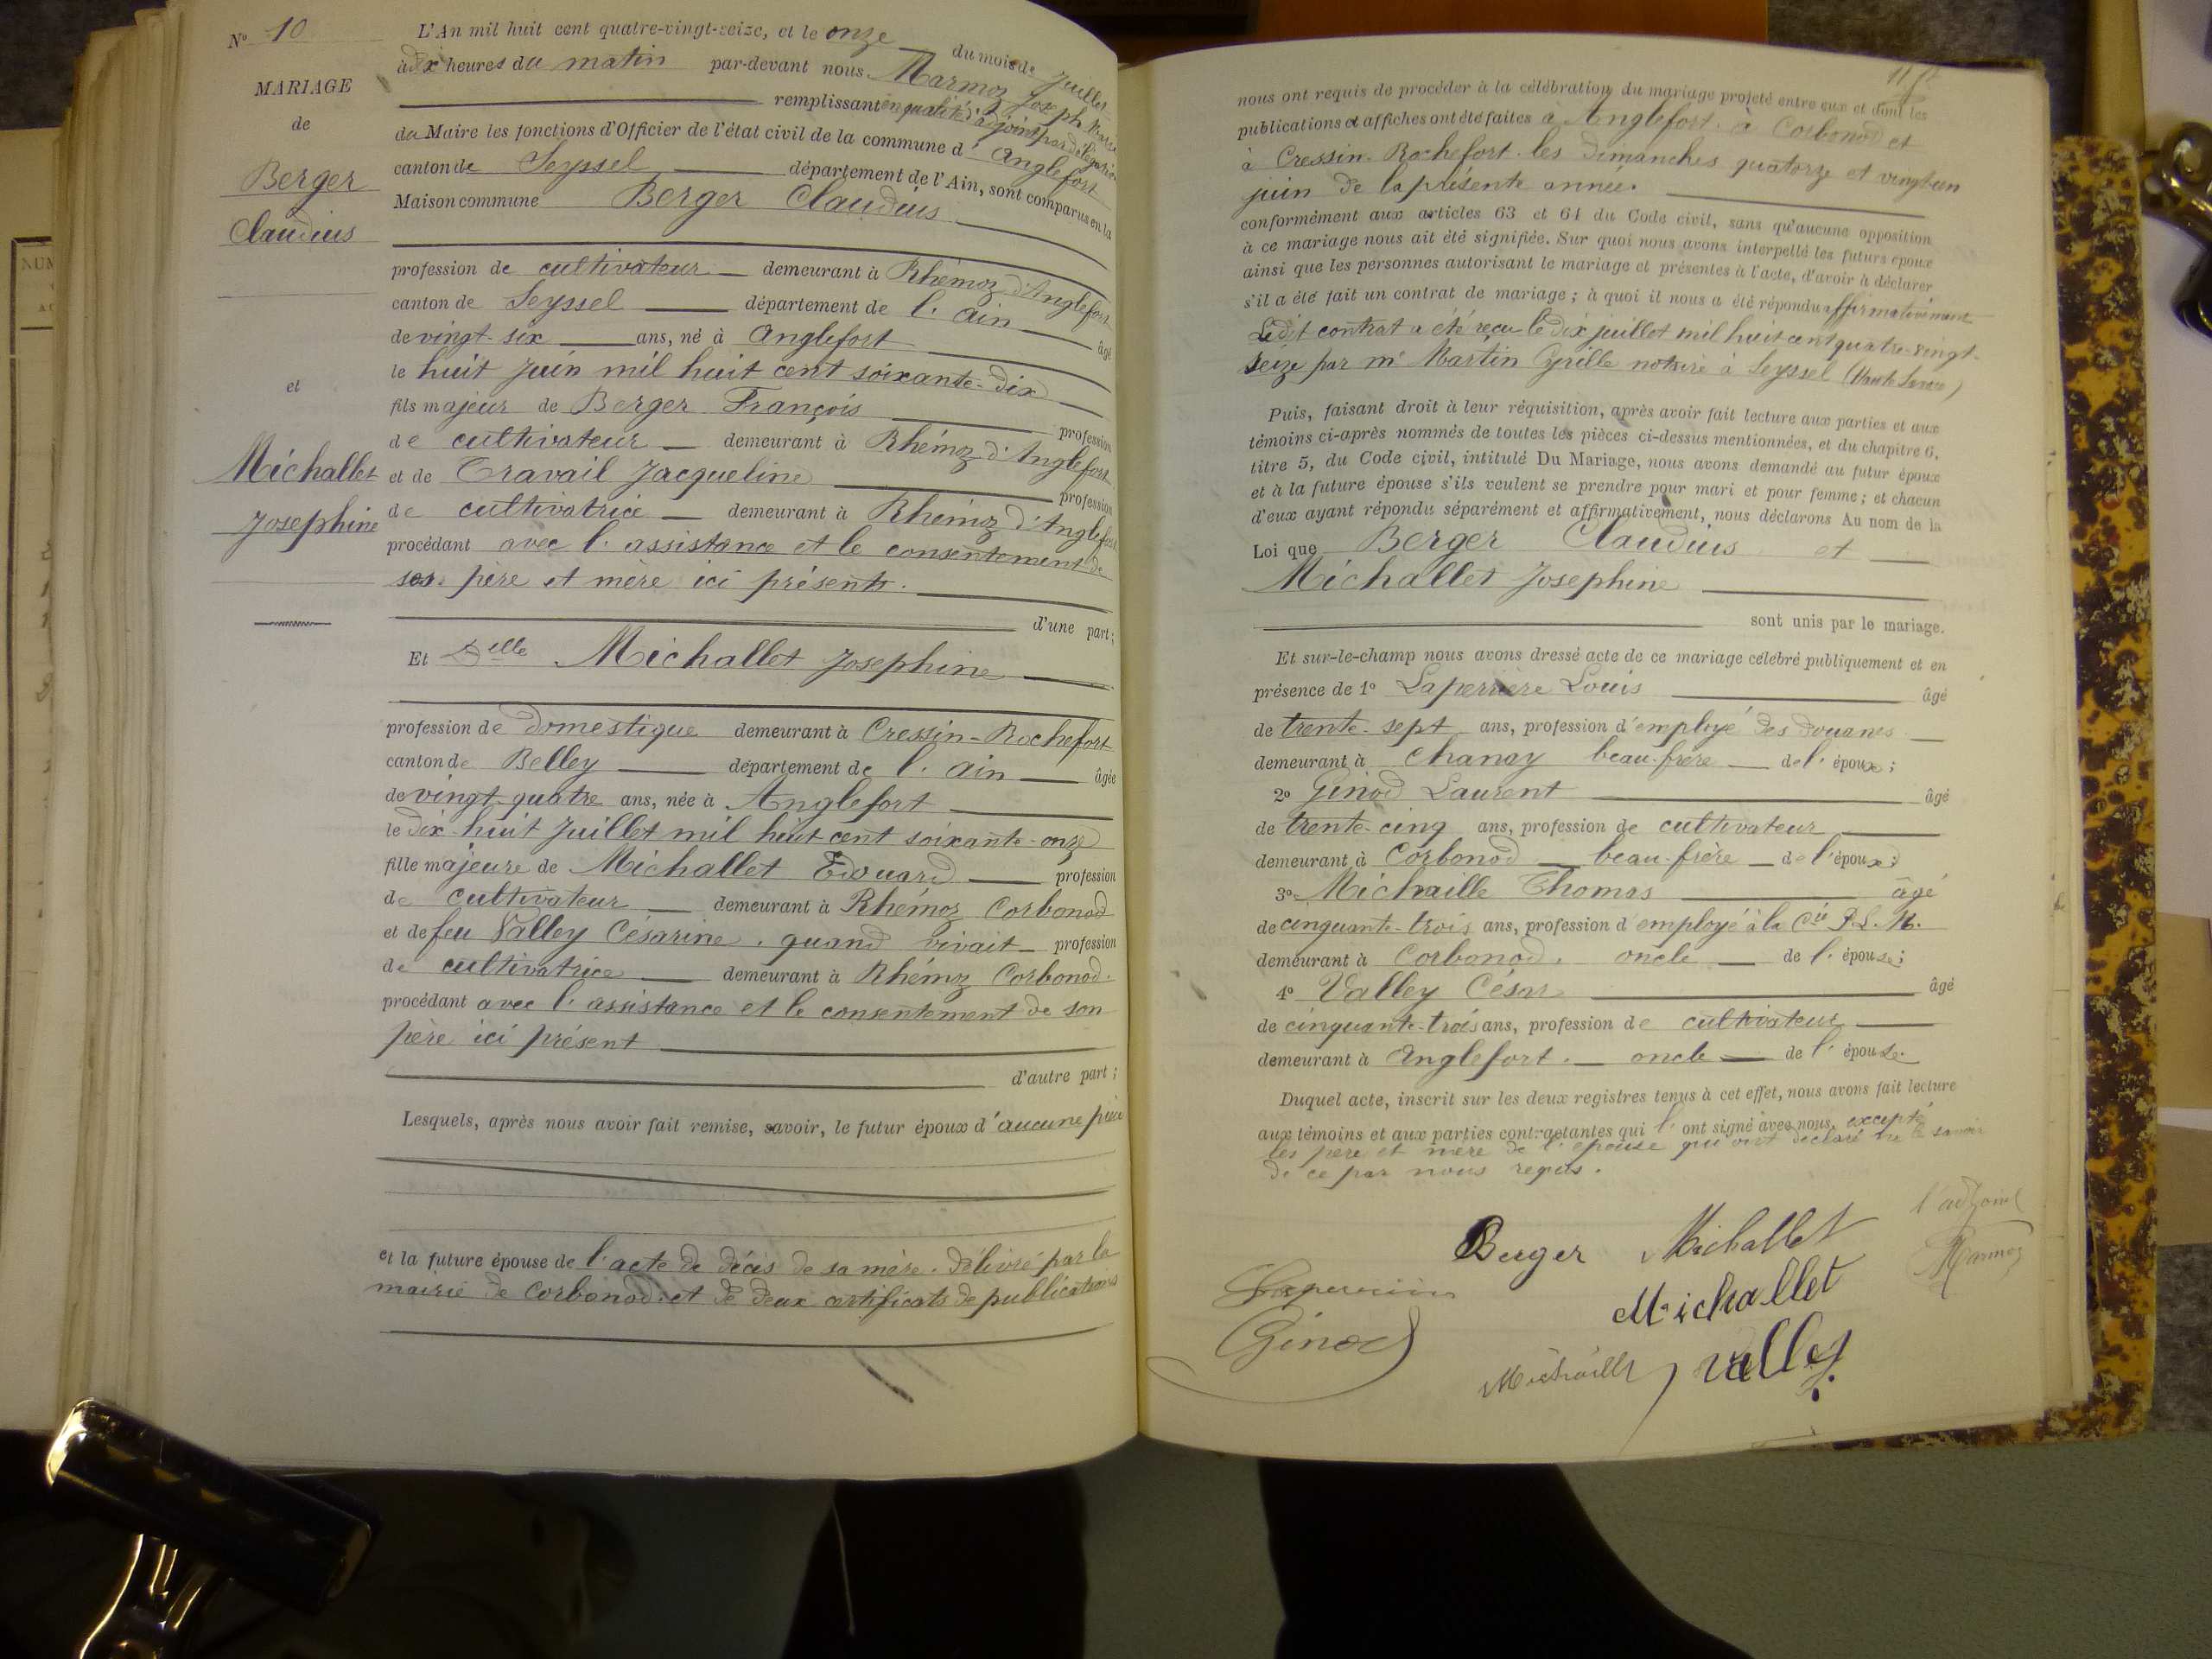 N° 10
MARIAGE
de
Berger
Claudius
et
Michallet
Josephine
L'An mil huit cent quatre-vingt-seize, et le onze du mois de Juillet
à dix heures du matin par-devant nous Marmoz Joseph
remplissant en qualité d'adjoint par délégation
du Maire les fonctions d'Officier de l'état civil de la commune d' Anglefort
canton de Seyssel département de l'Ain, sont comparus en la
Maison commune Berger Claudius
profession de cultivateur demeurant à Rhémoz d'Anglefort
canton de Seyssel département de l'Ain âgé
de vingt-six ans, né à Anglefort
le huit Juin mil huit cent soixante-dix
fils majeur de Berger François profession
de cultivateur demeurant à Rhémoz d'Anglefort
et de Travail Jacqueline profession
de cultivatrice demeurant à Rhémoz d'Anglefort
procédant avec l'assistance et le consentement de
ses père et mère ici présents.
d'une part;
Et Delle Michallet Josephine
profession de domestique demeurant à Cressin-Rochefort
canton de Belley département de l'Ain âgée
de vingt-quatre ans, née à Anglefort
le dix-huit Juillet mil huit cent soixante-onze
fille majeure de Michallet Edouard profession
de cultivateur demeurant à Rhémoz Corbonod
et de feu Valley Césarine. quand vivait profession
de cultivatrice demeurant à Rhémoz Corbonod.
procédant avec l'assistance et le consentement de son
père ici présent
d'autre part;
Lesquels, après nous avoir fait remise, savoir, le futur époux d'aucune pièce
et la future épouse de l'acte de décès de sa mère. délivré par la
mairie de Corbonod. et de deux certificats de publications
nous ont requis de procéder à la célébration du mariage projeté entre eux et dont les
publications et affiches ont été faites à Anglefort. à Corbonod et
à Cressin-Rochefort. les dimanches quatorze et vingt-un
juin de la présente année.
conformément aux articles 63 et 64 du Code civil, sans qu'aucune opposition
à ce mariage nous ait été signifiée. Sur quoi nous avons interpellé les futurs époux
ainsi que les personnes autorisant le mariage et présentes à l'acte, d'avoir à déclarer
s'il a été fait un contrat de mariage; à quoi il nous a été répondu affirmativement
Ledit contrat a été reçu le dix juillet mil huit cent quatre-vingt-
seize par Me Martin Cyrille notaire à Seyssel (Haute Savoie)
Puis, faisant droit à leur réquisition, après avoir fait lecture aux parties et aux
témoins ci-après nommés de toutes les pièces ci-dessus mentionnées, et du chapitre 6,
titre 5, du Code civil, intitulé Du Mariage, nous avons demandé au futur époux
et à la future épouse s'ils veulent se prendre pour mari et pour femme; et chacun
d'eux ayant répondu séparément et affirmativement, nous déclarons Au nom de la
Loi que Berger Claudius et
Michallet Josephine
sont unis par le mariage.
Et sur-le-champ nous avons dressé acte de ce mariage célébré publiquement et en
présence de 1° Laperrière Louis âgé
de trente-sept ans, profession d'employé des douanes
demeurant à Chanay beau-frère de l'époux;
2° Ginod Laurent âgé
de trente-cinq ans, profession de cultivateur
demeurant à Corbonod beau-frère de l'époux;
3° Michaille Thomas âgé
de cinquante-trois ans, profession d'employé à la Cie P.L.M.
demeurant à Corbonod. oncle de l'épouse;
4° Valley César âgé
de cinquante-trois ans, profession de cultivateur
demeurant à Anglefort. oncle de l'épouse.
Duquel acte, inscrit sur les deux registres tenus à cet effet, nous avons fait lecture
aux témoins et aux parties contractantes qui l'ont signé avec nous, excepté
les père et mère de l'épouse qui ont déclaré ne le savoir
de ce par nous requis.
l'adjoint
Berger Michallet Marmoz
Laperrière Michallet
Ginod
Michaille Valley